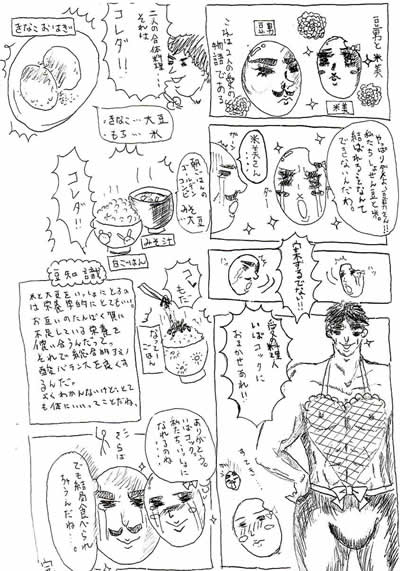 豆男と米美
豆男
米美
これは2人の愛の
物語である
やっぱりダメよ、豆男さん!!
私たち、しょせん豆と米。
結ばれることなんて
できないんだわ。
米美さん
・・・・
ガーン
定まするでない!!
愛の料理人
いばコックに
おまかせあれ!!
すてき
二人の合体料理
それは
コレダ!!
きなこおはぎ
きなこ…大豆
もち…米
朝ごはんの
ゴールデン
コンビ
みそ
大豆
コレダ!!
みそ汁
白ごはん
コレ
もだ
なっとー
ごはん
豆知識
米と大豆をいっしょにとるの
は栄養学的にとてもいい。
お互いのたんぱく質に
不足している栄養を
補い合うんだって。
それで総合的にアミノ
酸バランスを良くす
るんだ。
よくわかんないけど、とって
も体にいいってことだね。
ありがとう。
いばコック。
私たち、いっしょに
なれるのね
さらば
でも結局食べられ
ちゃうんだね…。
完